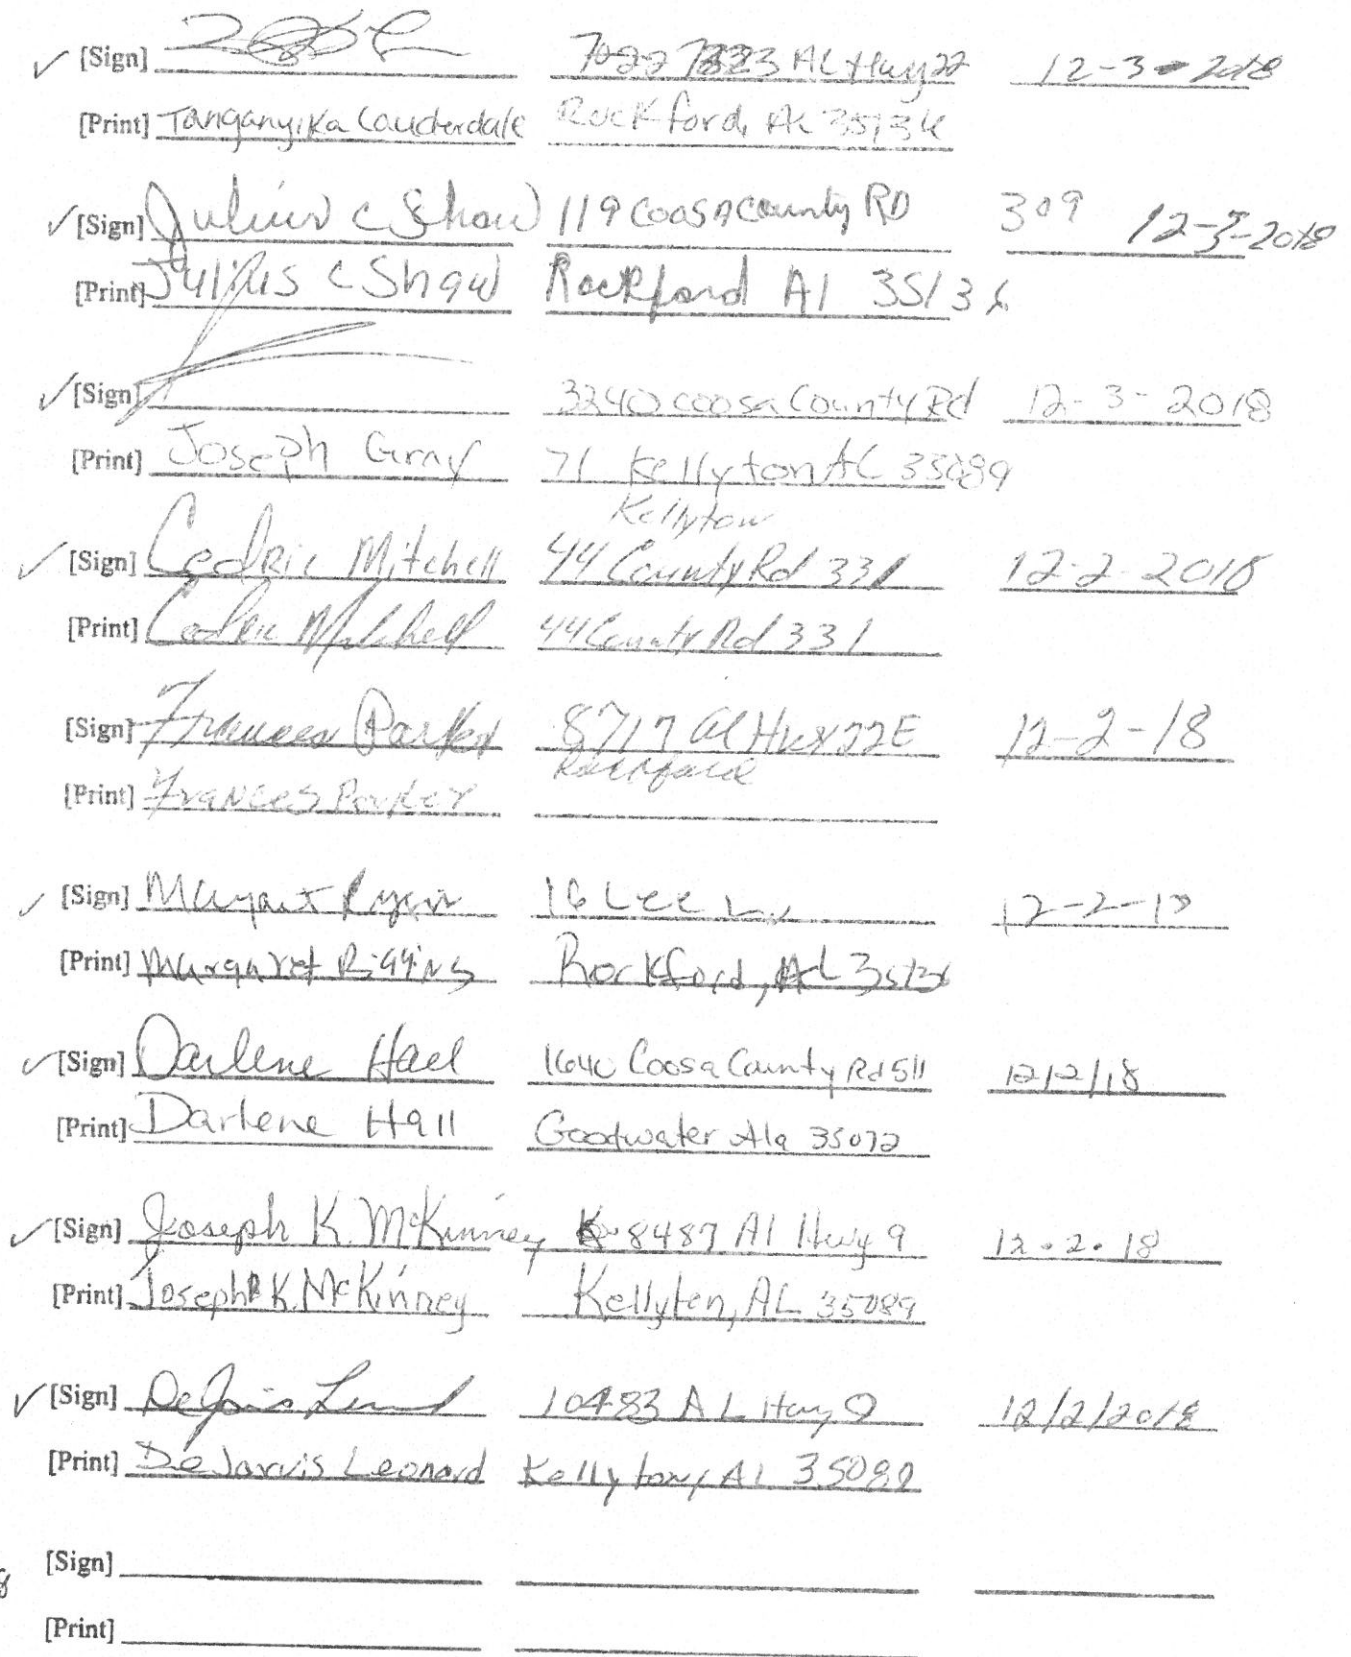 ✓ [Sign] 7333 AL Hwy 22 12-3-2018
[Print] Tanganyika Lauderdale Rockford, AL 35136
✓ [Sign] Julius C Shaw 119 Coosa County RD 309 12-3-2018
[Print] Julius C Shaw Rockford Al 35136
✓ [Sign] 3240 Coosa County Rd 12-3-2018
[Print] Joseph Gray 71 Kellyton AL 35089
Kellyton
✓ [Sign] Cedric Mitchell 44 County Rd 331 12-2-2018
[Print] Cedric Mitchell 44 County Rd 331
[Sign] Frances Parker 8717 Al Hwy 22E 12-2-18
Rockford
[Print] Frances Parker
✓ [Sign] Margaret 16 Lee Ln 12-2-18
[Print] Margaret Riggins Rockford, AL 35136
✓ [Sign] Darlene Hall 1640 Coosa County Rd 511 12/2/18
[Print] Darlene Hall Goodwater Ala 35072
✓ [Sign] Joseph K. McKinney 8487 Al Hwy 9 12.2.18
[Print] Joseph K. McKinney Kellyton, AL 35089
✓ [Sign] DeJarvis Leonard 10483 AL Hwy 9 12/2/2018
[Print] DeJarvis Leonard Kellyton, AL 35089
[Sign]
[Print]